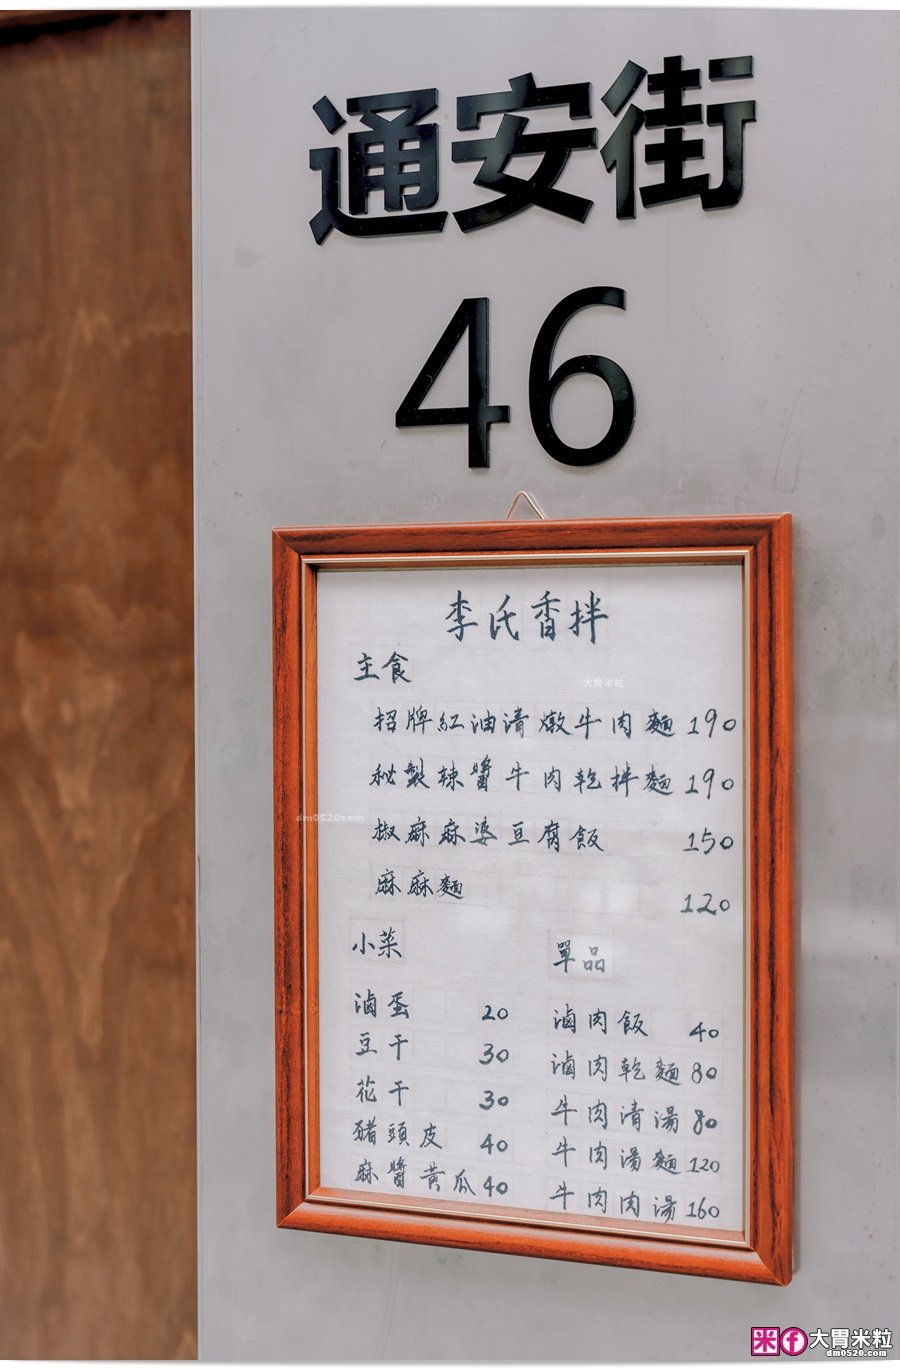 通安街
46
李氏香拌
主食
大胃米粒
招牌紅油清燉牛肉麵 190
秘製辣醬牛肉乾拌麵 190
dm0520.com
椒麻麻婆豆腐飯 150
麻麻麵 120
小菜
滷蛋 20
豆干 30
花干 30
豬頭皮 40
麻醬黃瓜 40
單品
滷肉飯 40
滷肉乾麵 80
牛肉清湯 80
牛肉湯麵 120
牛肉肉湯 160
米 f 大胃米粒
dm0520.com